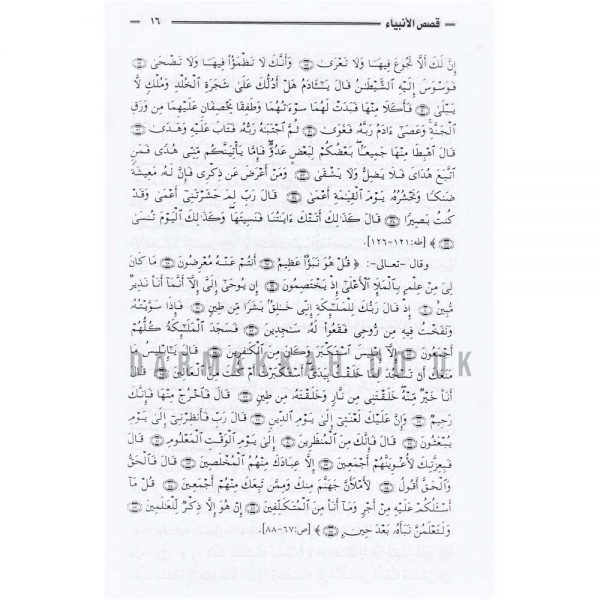 قصص الأنبياء ١٦
إِنَّ لَكَ أَلَّا تَجُوعَ فِيهَا وَلَا تَعْرَىٰ ۝ وَأَنَّكَ لَا تَظْمَؤُا۟ فِيهَا وَلَا تَضْحَىٰ ۝
فَوَسْوَسَ إِلَيْهِ ٱلشَّيْطَـٰنُ قَالَ يَـٰٓـَٔادَمُ هَلْ أَدُلُّكَ عَلَىٰ شَجَرَةِ ٱلْخُلْدِ وَمُلْكٍ لَّا
يَبْلَىٰ ۝ فَأَكَلَا مِنْهَا فَبَدَتْ لَهُمَا سَوْءَٰتُهُمَا وَطَفِقَا يَخْصِفَانِ عَلَيْهِمَا مِن وَرَقِ
ٱلْجَنَّةِ ۚ وَعَصَىٰٓ ءَادَمُ رَبَّهُۥ فَغَوَىٰ ۝ ثُمَّ ٱجْتَبَـٰهُ رَبُّهُۥ فَتَابَ عَلَيْهِ وَهَدَىٰ ۝
قَالَ ٱهْبِطَا مِنْهَا جَمِيعًۢا ۖ بَعْضُكُمْ لِبَعْضٍ عَدُوٌّ ۖ فَإِمَّا يَأْتِيَنَّكُم مِّنِّى هُدًى فَمَنِ
ٱتَّبَعَ هُدَاىَ فَلَا يَضِلُّ وَلَا يَشْقَىٰ ۝ وَمَنْ أَعْرَضَ عَن ذِكْرِى فَإِنَّ لَهُۥ مَعِيشَةً
ضَنكًا وَنَحْشُرُهُۥ يَوْمَ ٱلْقِيَـٰمَةِ أَعْمَىٰ ۝ قَالَ رَبِّ لِمَ حَشَرْتَنِىٓ أَعْمَىٰ وَقَدْ
كُنتُ بَصِيرًا ۝ قَالَ كَذَٰلِكَ أَتَتْكَ ءَايَـٰتُنَا فَنَسِيتَهَا ۖ وَكَذَٰلِكَ ٱلْيَوْمَ تُنسَىٰ
۝ ﴾ [طه: ١٢١-١٢٦].
وقال -تعالى-: ﴿ قُلْ هُوَ نَبَؤٌا۟ عَظِيمٌ ۝ أَنتُمْ عَنْهُ مُعْرِضُونَ ۝ مَا كَانَ
لِىَ مِنْ عِلْمٍۭ بِٱلْمَلَإِ ٱلْأَعْلَىٰٓ إِذْ يَخْتَصِمُونَ ۝ إِن يُوحَىٰٓ إِلَىَّ إِلَّآ أَنَّمَآ أَنَا۠ نَذِيرٌ
مُّبِينٌ ۝ إِذْ قَالَ رَبُّكَ لِلْمَلَـٰٓئِكَةِ إِنِّى خَـٰلِقٌۢ بَشَرًا مِّن طِينٍ ۝ فَإِذَا سَوَّيْتُهُۥ
وَنَفَخْتُ فِيهِ مِن رُّوحِى فَقَعُوا۟ لَهُۥ سَـٰجِدِينَ ۝ فَسَجَدَ ٱلْمَلَـٰٓئِكَةُ كُلُّهُمْ
أَجْمَعُونَ ۝ إِلَّآ إِبْلِيسَ ٱسْتَكْبَرَ وَكَانَ مِنَ ٱلْكَـٰفِرِينَ ۝ قَالَ يَـٰٓإِبْلِيسُ مَا
DARMAKKAH.CO.UK
مَنَعَكَ أَن تَسْجُدَ لِمَا خَلَقْتُ بِيَدَىَّ ۖ أَسْتَكْبَرْتَ أَمْ كُنتَ مِنَ ٱلْعَالِينَ ۝ قَالَ
أَنَا۠ خَيْرٌ مِّنْهُ ۖ خَلَقْتَنِى مِن نَّارٍ وَخَلَقْتَهُۥ مِن طِينٍ ۝ قَالَ فَٱخْرُجْ مِنْهَا فَإِنَّكَ
رَجِيمٌ ۝ وَإِنَّ عَلَيْكَ لَعْنَتِىٓ إِلَىٰ يَوْمِ ٱلدِّينِ ۝ قَالَ رَبِّ فَأَنظِرْنِىٓ إِلَىٰ يَوْمِ
يُبْعَثُونَ ۝ قَالَ فَإِنَّكَ مِنَ ٱلْمُنظَرِينَ ۝ إِلَىٰ يَوْمِ ٱلْوَقْتِ ٱلْمَعْلُومِ ۝ قَالَ
فَبِعِزَّتِكَ لَأُغْوِيَنَّهُمْ أَجْمَعِينَ ۝ إِلَّا عِبَادَكَ مِنْهُمُ ٱلْمُخْلَصِينَ ۝ قَالَ فَٱلْحَقُّ
وَٱلْحَقَّ أَقُولُ ۝ لَأَمْلَأَنَّ جَهَنَّمَ مِنكَ وَمِمَّن تَبِعَكَ مِنْهُمْ أَجْمَعِينَ ۝ قُلْ مَآ
أَسْـَٔلُكُمْ عَلَيْهِ مِنْ أَجْرٍ وَمَآ أَنَا۠ مِنَ ٱلْمُتَكَلِّفِينَ ۝ إِنْ هُوَ إِلَّا ذِكْرٌ لِّلْعَـٰلَمِينَ ۝
وَلَتَعْلَمُنَّ نَبَأَهُۥ بَعْدَ حِينٍۭ ۝ ﴾ [ص: ٦٧-٨٨].